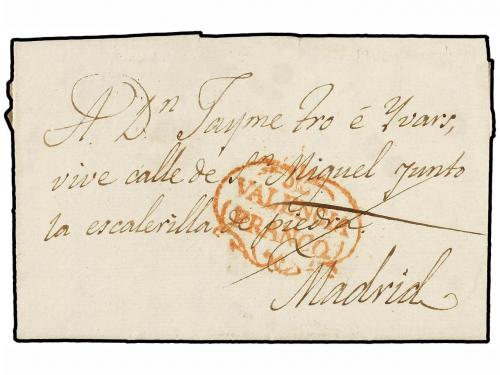 A Dn Jayme Pro é Yvars,
vive calle de Sn Miguel junto
la escalerilla de piedra
Madrid
VALENCIA
FRANCO